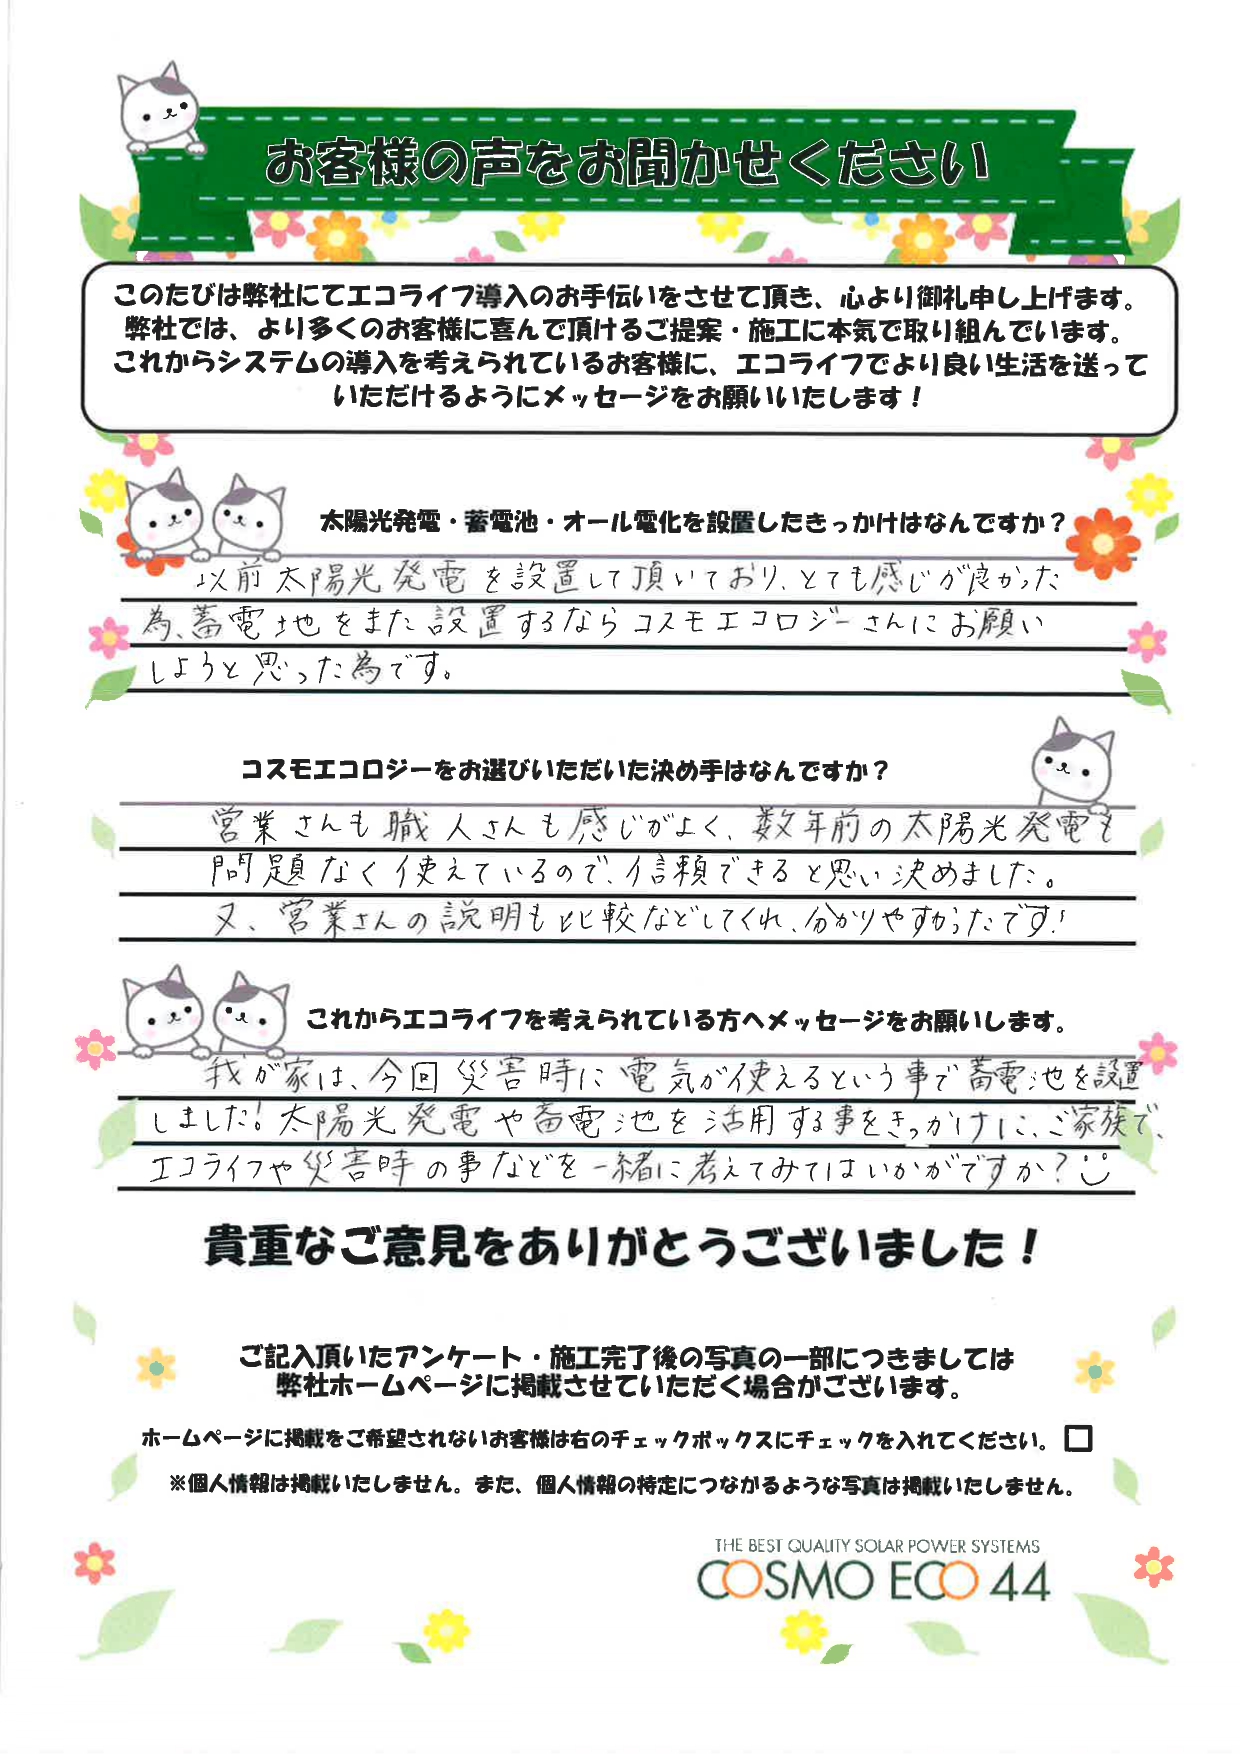 お客様の声をお聞かせください
このたびは弊社にてエコライフ導入のお手伝いをさせて頂き、心より御礼申し上げます。
弊社では、より多くのお客様に喜んで頂けるご提案・施工に本気で取り組んでいます。
これからシステムの導入を考えられているお客様に、エコライフでより良い生活を送って
いただけるようにメッセージをお願いいたします！
太陽光発電・蓄電池・オール電化を設置したきっかけはなんですか？
以前太陽光発電を設置して頂いており、とても感じが良かった
為、蓄電地をまた設置するならコスモエコロジーさんにお願い
しようと思った為です。
コスモエコロジーをお選びいただいた決め手はなんですか？
営業さんも職人さんも感じがよく、数年前の太陽光発電も
問題なく使えているので、信頼できると思い決めました。
又、営業さんの説明も比較などしてくれ、分かりやすかったです!
これからエコライフを考えられている方へメッセージをお願いします。
我が家は、今回災害時に電気が使えるという事で蓄電池を設置
しました! 太陽光発電や蓄電池を活用する事をきっかけに、ご家族で、
エコライフや災害時の事などを一緒に考えてみてはいかがですか?
貴重なご意見をありがとうございました！
ご記入頂いたアンケート・施工完了後の写真の一部につきましては
弊社ホームページに掲載させていただく場合がございます。
ホームページに掲載をご希望されないお客様は右のチェックボックスにチェックを入れてください。□
※個人情報は掲載いたしません。また、個人情報の特定につながるような写真は掲載いたしません。
THE BEST QUALITY SOLAR POWER SYSTEMS
COSMO ECO 44